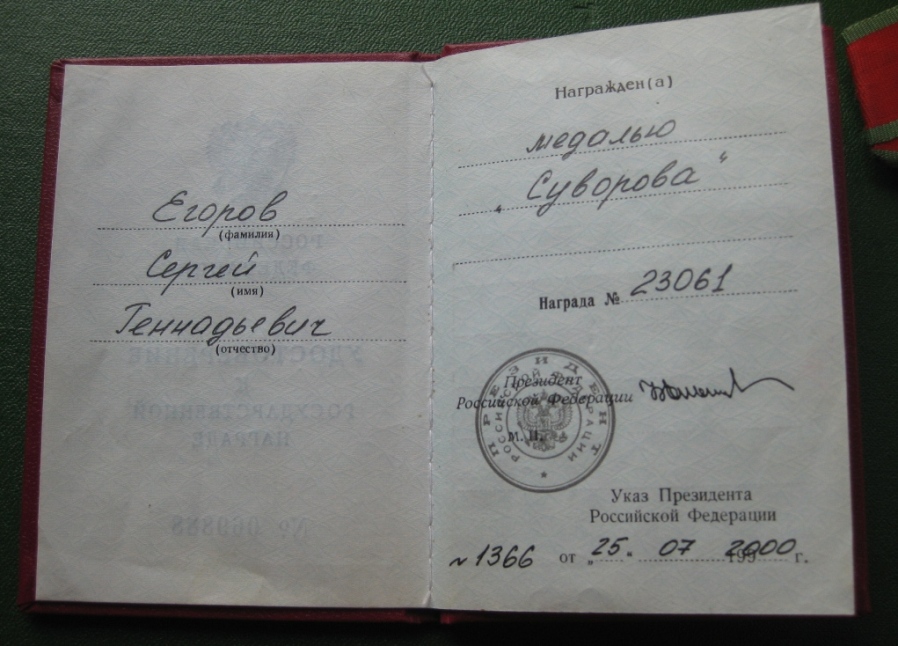 Егоров
(фамилия)
Сергей
(имя)
Геннадьевич
(отчество)
РОССИЙСКАЯ
ФЕДЕРАЦИЯ
УДОСТОВЕРЕНИЕ
К
ГОСУДАРСТВЕННОЙ
НАГРАДЕ
Награжден(а)
медалью
„Суворова“
Награда № 23061
ПРЕЗИДЕНТ
РОССИЙСКОЙ ФЕДЕРАЦИИ
Президент
Российской Федерации
М. П.
Указ Президента
Российской Федерации
№1366 от „25“ 07 2000 г.